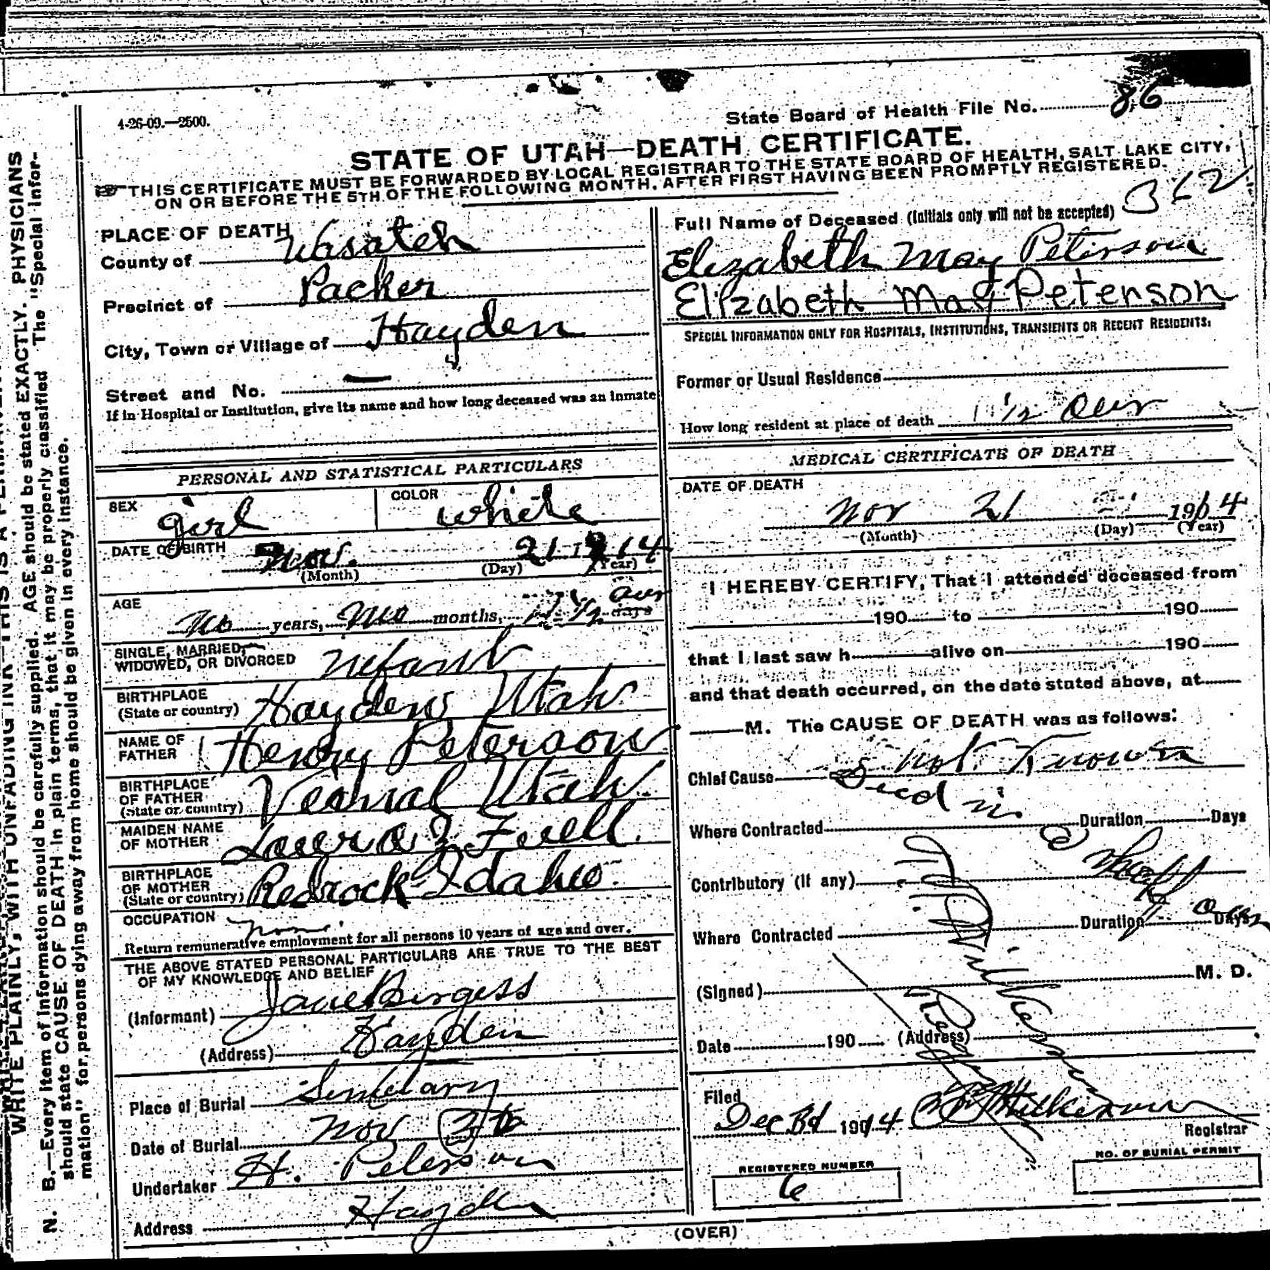 4-26-09.—2500.
State Board of Health File No. 86
STATE OF UTAH—DEATH CERTIFICATE.
THIS CERTIFICATE MUST BE FORWARDED BY LOCAL REGISTRAR TO THE STATE BOARD OF HEALTH, SALT LAKE CITY,
ON OR BEFORE THE 5TH OF THE FOLLOWING MONTH, AFTER FIRST HAVING BEEN PROMPTLY REGISTERED.
362
PLACE OF DEARTH
County of Wasatch
Precinct of Packer
City, Town or Village of Hayden
Street and No. —
If in Hospital or Institution, give its name and how long deceased was an inmate
PERSONAL AND STATISTICAL PARTICULARS
SEX girl
COLOR white
DATE OF BIRTH Nov. 21 1914
(Month) (Day) (Year)
AGE
No years, months, 1/2 our days
SINGLE, MARRIED,
WIDOWED, OR DIVORCED infant
BIRTHPLACE
(State or country) Hayden Utah
NAME OF
FATHER Henry Peterson
BIRTHPLACE
OF FATHER
(State or country) Vernal Utah.
MAIDEN NAME
OF MOTHER
BIRTHPLACE
OF MOTHER
(State or country) Redrock Idaho.
OCCUPATION none
Return remunerative employment for all persons 10 years of age and over.
THE ABOVE STATED PERSONAL PARTICULARS ARE TRUE TO THE BEST
OF MY KNOWLEDGE AND BELIEF
(Informant) Jane Burgess
(Address) Hayden
Place of Burial Simetary
Date of Burial Nov
Undertaker H. Peterson
Address Hayden
Full Name of Deceased (Initials only will not be accepted)
Elizabeth May Peterson
Elizabeth May Peterson
SPECIAL INFORMATION ONLY FOR HOSPITALS, INSTITUTIONS, TRANSIENTS OR RECENT RESIDENTS.
Former or Usual Residence
How long resident at place of death 1 1/2 our
MEDICAL CERTIFICATE OF DEATH
DATE OF DEATH
Nov 21 1914
(Month) (Day) (Year)
I HEREBY CERTIFY, That I attended deceased from
190 to 190
that I last saw h alive on 190
and that death occurred, on the date stated above, at
M. The CAUSE OF DEATH was as follows:
Chief Cause not Known
Died in
Where Contracted Duration Days
Contributory (if any)
Where Contracted Duration Days
(Signed) M. D.
Date 190 (Address)
Filed
Dec 3d 1914 Wilkerson
Registrar
REGISTERED NUMBER
6
NO. OF BURIAL PERMIT
(OVER)
WRITE PLAINLY, WITH UNFADING INK—THIS IS A
N. B.—Every item of information should be carefully supplied. AGE should be stated EXACTLY. PHYSICIANS
should state CAUSE OF DEATH in plain terms, that it may be properly classified. The "Special Infor-
mation" for persons dying away from home should be given in every instance.